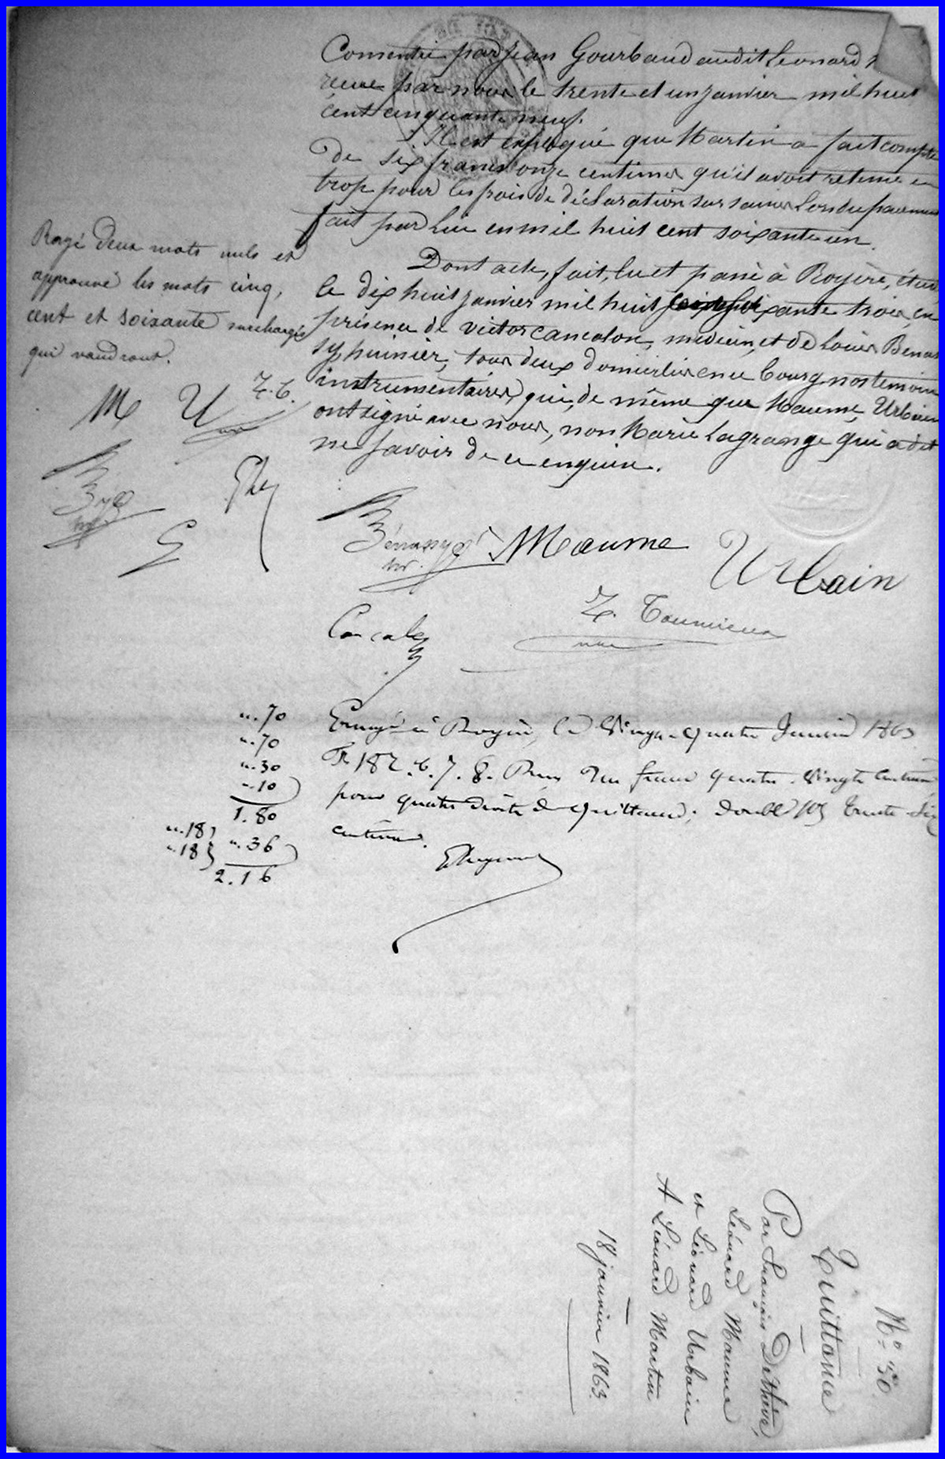 Consentie par Jean Gourbaud audit Leonard
reçue par nous le trente et un janvier mil huit
cent cinquante neuf.
Il est expliqué que Martin a fait compte
de six francs onze centimes qu'il avoit retenu en
trop pour les frais de déclaration sur
fait par Lui en mil huit cent soixante un.
Dont acte, fait, lu et passé à Royère, étude
le dix huit janvier mil huit soixante trois, en
présence de victor cancalon, médecin, et de Louis Benas
sy huissier, tous deux domiciliés en ce bourg nos témoins
instrumentaires, qui, de même que Maume, Urbain
ont signé avec nous, non Marie Lagrange qui a dit
ne savoir de ce enquise.
Rayé deux mots nuls et
approuvé les mots cinq,
cent et soixante surchargés
qui vaudront.
M U Z. T.
Bénassy
Maume
Urbain
Z. Toumieux
Cancalon
". 70
". 70
". 30
". 10
1. 80
". 18
". 18
". 36
2. 16
à Royère, le Vingt-quatre Janvier 1863
Fo 182. 6. 7. 8. Reçu Un franc quatre-Vingts centimes
pour quatre droits de quittance. double Trente Six
centimes.
No 30
Quittance
Par François
Léonard Maume
et Léonard Urbain
A Léonard Martin
18 janvier 1863